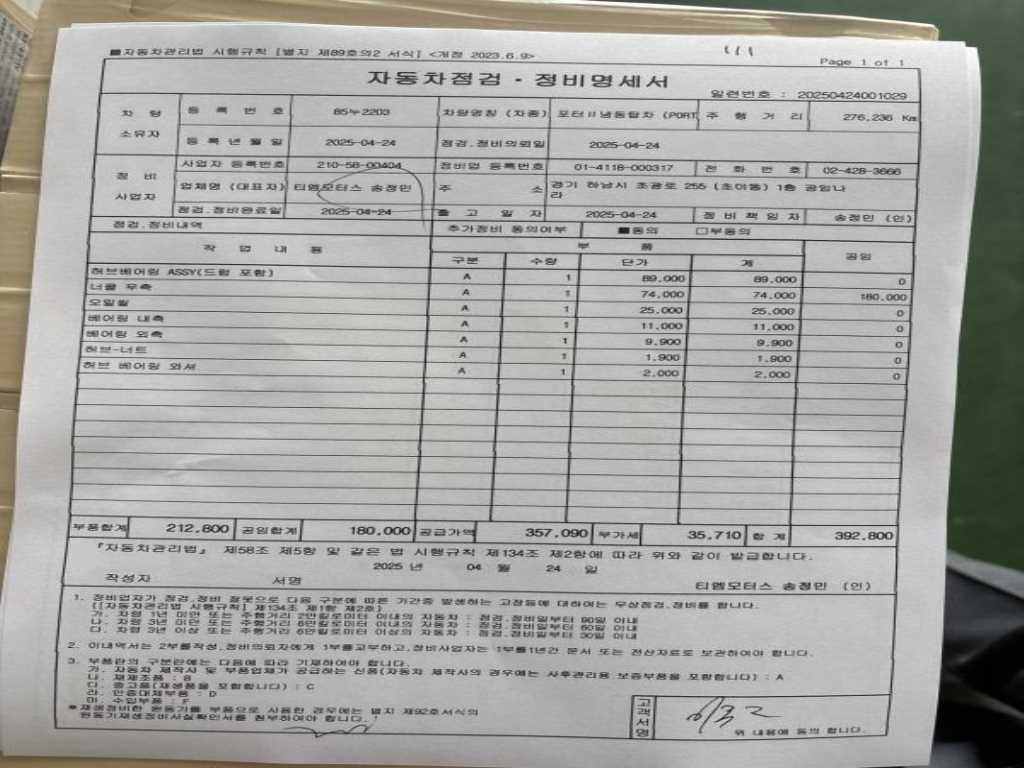 ■자동차관리법 시행규칙 [별지 제89호의2 서식] <개정 2023.6.9>
Page 1 of 1
자동차점검 · 정비명세서
일련번호 : 20250424001029
차 량 소유자 등 록 번 호 85누2203 차량명칭 (차종) 포터Ⅱ냉동탑차 (PORT 주 행 거 리 276,236 Km
등 록 년 월 일 2025-04-24 점검.정비의뢰일 2025-04-24
정 비 사업자 사업자 등록번호 210-58-00404 정비업 등록번호 01-4118-000317 전 화 번 호 02-428-3666
업체명 (대표자) 티엠모터스 송정민 주 소 경기 하남시 초광로 255 (초이동) 1층 공임나라
점검.정비완료일 2025-04-24 출 고 일 자 2025-04-24 정 비 책 임 자 송정민 (인)
점검.정비내역 추가정비 동의여부 ■동의 □부동의
작 업 내 용 부 품 공임
구분 수량 단가 계
허브베어링 ASSY(드럼 포함) A 1 89,000 89,000 0
너클 우측 A 1 74,000 74,000 180,000
오일씰 A 1 25,000 25,000 0
베어링 내측 A 1 11,000 11,000 0
베어링 외측 A 1 9,900 9,900 0
허브-너트 A 1 1,900 1,900 0
허브 베어링 와셔 A 1 2,000 2,000 0
부품합계 212,800 공임합계 180,000 공급가액 357,090 부가세 35,710 합 계 392,800
『자동차관리법』 제58조 제5항 및 같은 법 시행규칙 제134조 제2항에 따라 위와 같이 발급합니다.
2025 년 04 월 24 일
작성자 서명 티엠모터스 송정민 (인)
1. 정비업자가 점검.정비 잘못으로 다음 구분에 따른 기간중 발생하는 고장등에 대하여는 무상점검.정비를 합니다.
([자동차관리법 시행규칙] 제134조 제1항 제2호)
가. 차령 1년 미만 또는 주행거리 2만킬로미터 이내의 자동차 : 점검.정비일부터 90일 이내
나. 차령 3년 미만 또는 주행거리 6만킬로미터 이내의 자동차 : 점검.정비일부터 60일 이내
다. 차령 3년 이상 또는 주행거리 6만킬로미터 이상의 자동차 : 점검.정비일부터 30일 이내
2. 이내역서는 2부를작성,정비의뢰자에게 1부를교부하고,정비사업자는 1부를1년간 문서 또는 전산자료로 보관하여야 합니다.
3. 부품란의 구분란에는 다음에 따라 기재하여야 합니다.
가. 자동차 제작사 및 부품업체가 공급하는 신품(자동차 제작사의 경우에는 사후관리용 보증부품을 포함합니다) : A
나. 재제조품 : B
다. 중고품(재생품을 포함합니다) : C
라. 인증대체부품 : D
마. 수입부품 : F
*재생정비한 원동기를 부품으로 사용한 경우에는 별지 제92호서식의
원동기재생정비사실확인서를 첨부하여야 합니다.
고객서명
위 내용에 동의 합니다.